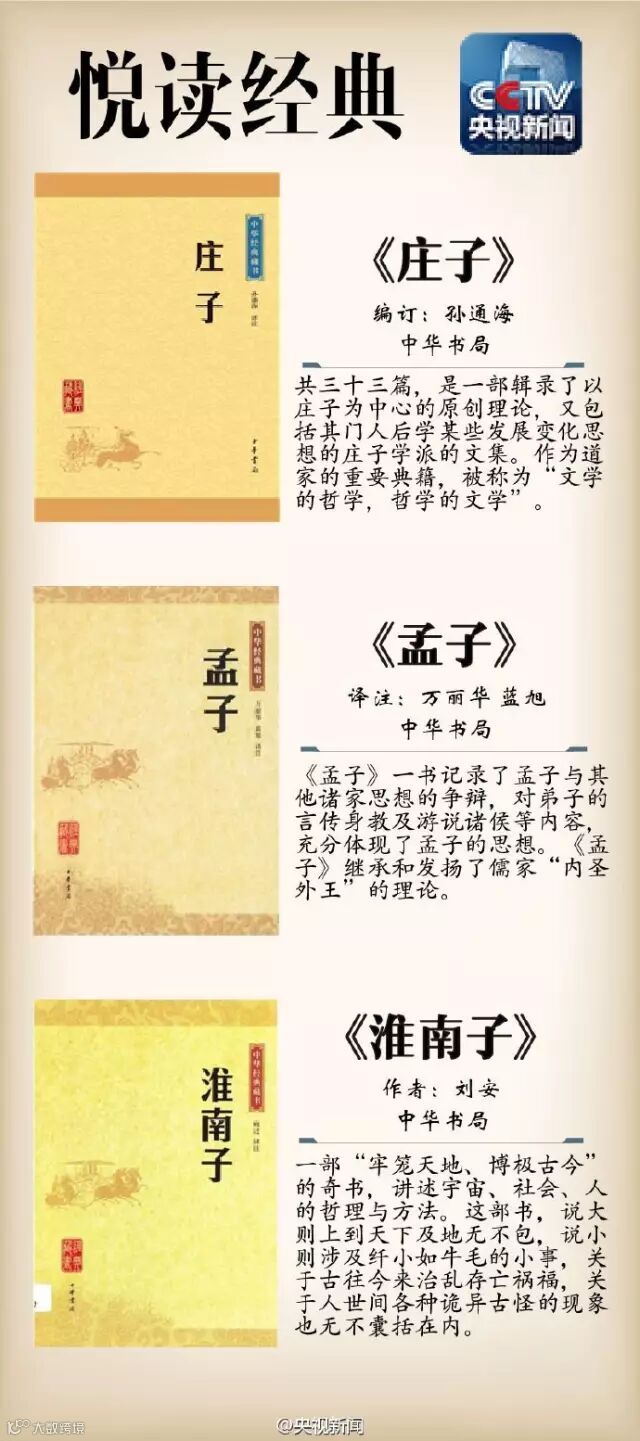 悦读经典
CCTV
央视新闻
中华经典藏书
庄子
孙通海 译注
中华书局
《庄子》
编订：孙通海
中华书局
共三十三篇，是一部辑录了以
庄子为中心的原创理论，又包
括其门人后学某些发展变化思
想的庄子学派的文集。作为道
家的重要典籍，被称为“文学
的哲学，哲学的文学”。
中华经典藏书
孟子
万丽华 蓝旭 译注
中华书局
《孟子》
译注：万丽华 蓝旭
中华书局
《孟子》一书记录了孟子与其
他诸家思想的争辩，对弟子的
言传身教及游说诸侯等内容，
充分体现了孟子的思想。《孟
子》继承和发扬了儒家“内圣
外王”的理论。
中华经典藏书
淮南子
译注
中华书局
《淮南子》
作者：刘安
中华书局
一部“牢笼天地、博极古今”
的奇书，讲述宇宙、社会、人
的哲理与方法。这部书，说大
则上到天下及地无不包，说小
则涉及纤小如牛毛的小事，关
于古往今来治乱存亡祸福，关
于人世间各种诡异古怪的现象
也无不囊括在内。
大数跨境
@央视新闻